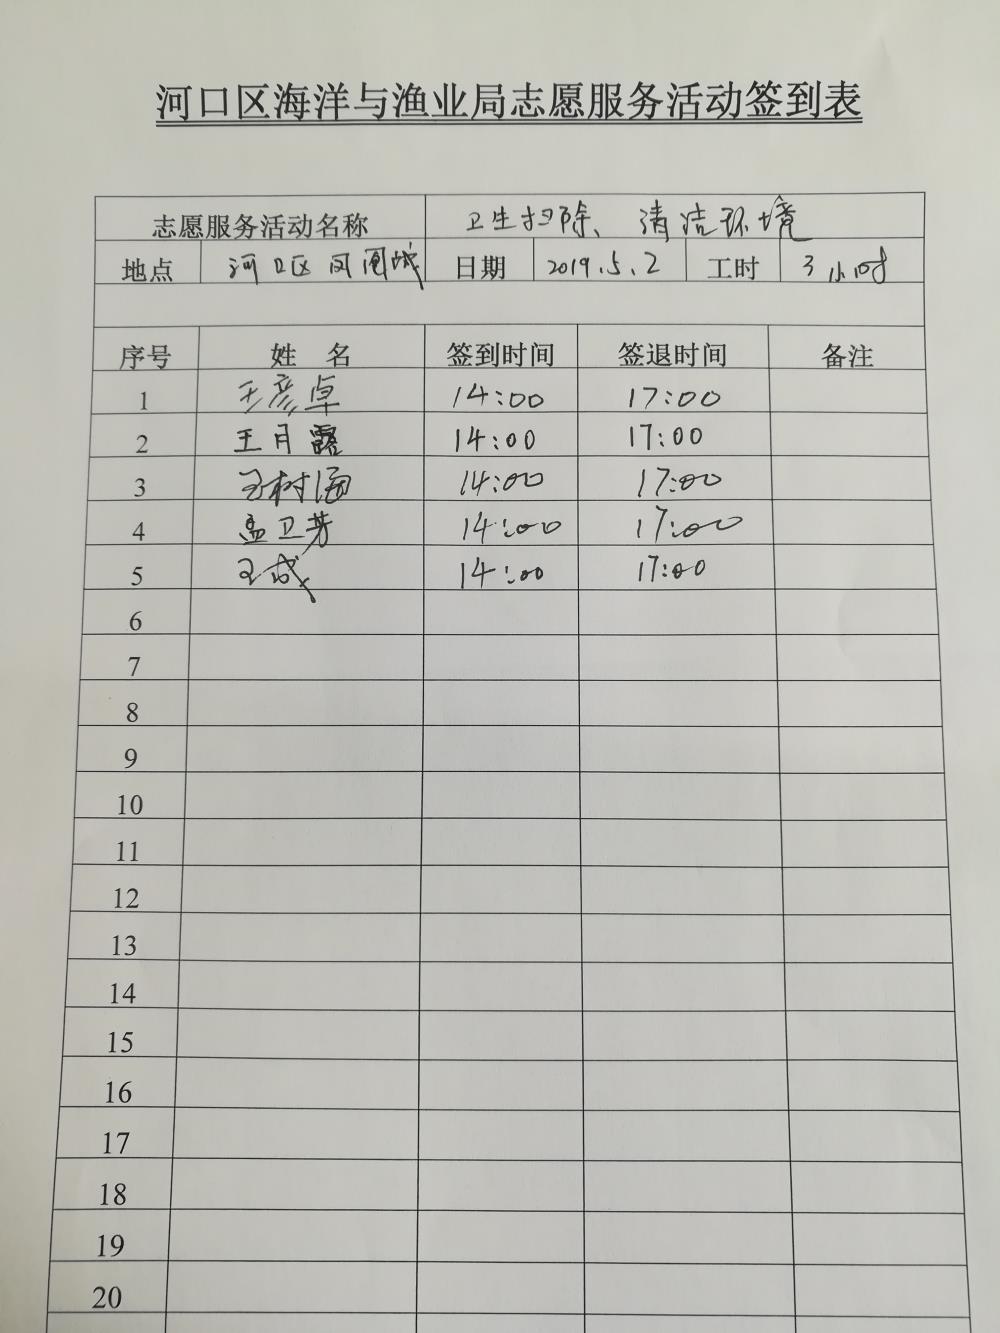 河口区海洋与渔业局志愿服务活动签到表
志愿服务活动名称 卫生扫除、清洁环境
地点 河口区凤凰城 日期 2019.5.2 工时 3小时
序号 姓 名 签到时间 签退时间 备注
1 王彦卓 14:00 17:00
2 王月露 14:00 17:00
3 王树海 14:00 17:00
4 孟卫芳 14:00 17:00
5 王成 14:00 17:00
6
7
8
9
10
11
12
13
14
15
16
17
18
19
20